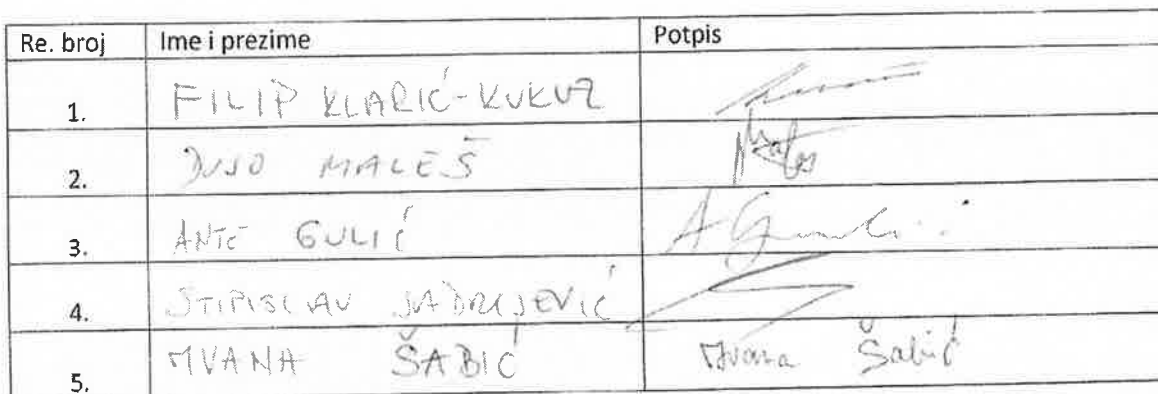 Re. broj Ime i prezime Potpis
1. FILIP KLARIĆ-KUKUZ
2. DUJO MALEŠ
3. ANTE GULIĆ A Gulić
4. STIPISLAV JADRIJEVIĆ
5. IVANA ŠABIĆ Ivana Šabić